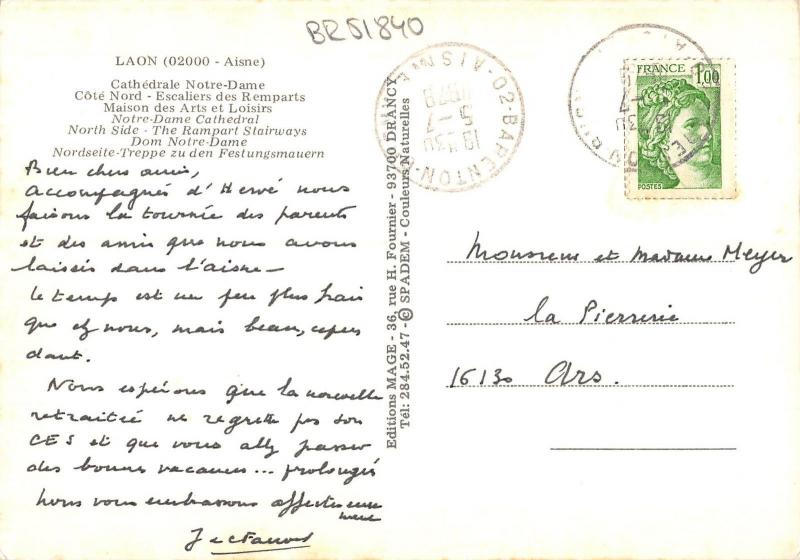 BR51840
LAON (02000 - Aisne)
Cathédrale Notre-Dame
Côté Nord - Escaliers des Remparts
Maison des Arts et Loisirs
Notre-Dame Cathedral
North Side - The Rampart Stairways
Dom Notre-Dame
Nordseite-Treppe zu den Festungsmauern
Bien chers amis,
accompagnés d'Hervé nous
faisons la tournée des parents
et des amis que nous avons
laissés dans l'aisne -
le temps est un peu plus frais
que chez nous, mais beau, cepen
dant.
Nous espérons que la nouvelle
retraitée ne regrette pas son
CES et que vous allez passer
des bonnes vacances... prolongées
nous vous embrassons affectueuse
ment
Editions MAGE - 36, rue H. Fournier - 93700 DRANCY
Tél: 284.52.47 - © SPADEM - Couleurs Naturelles
02-BARENTON-
AISNE
19 H30
5 - 7
1978
FRANCE
1,00
POSTES
Monsieur et Madame Meyer
la Pierrerie
16130 Ars.